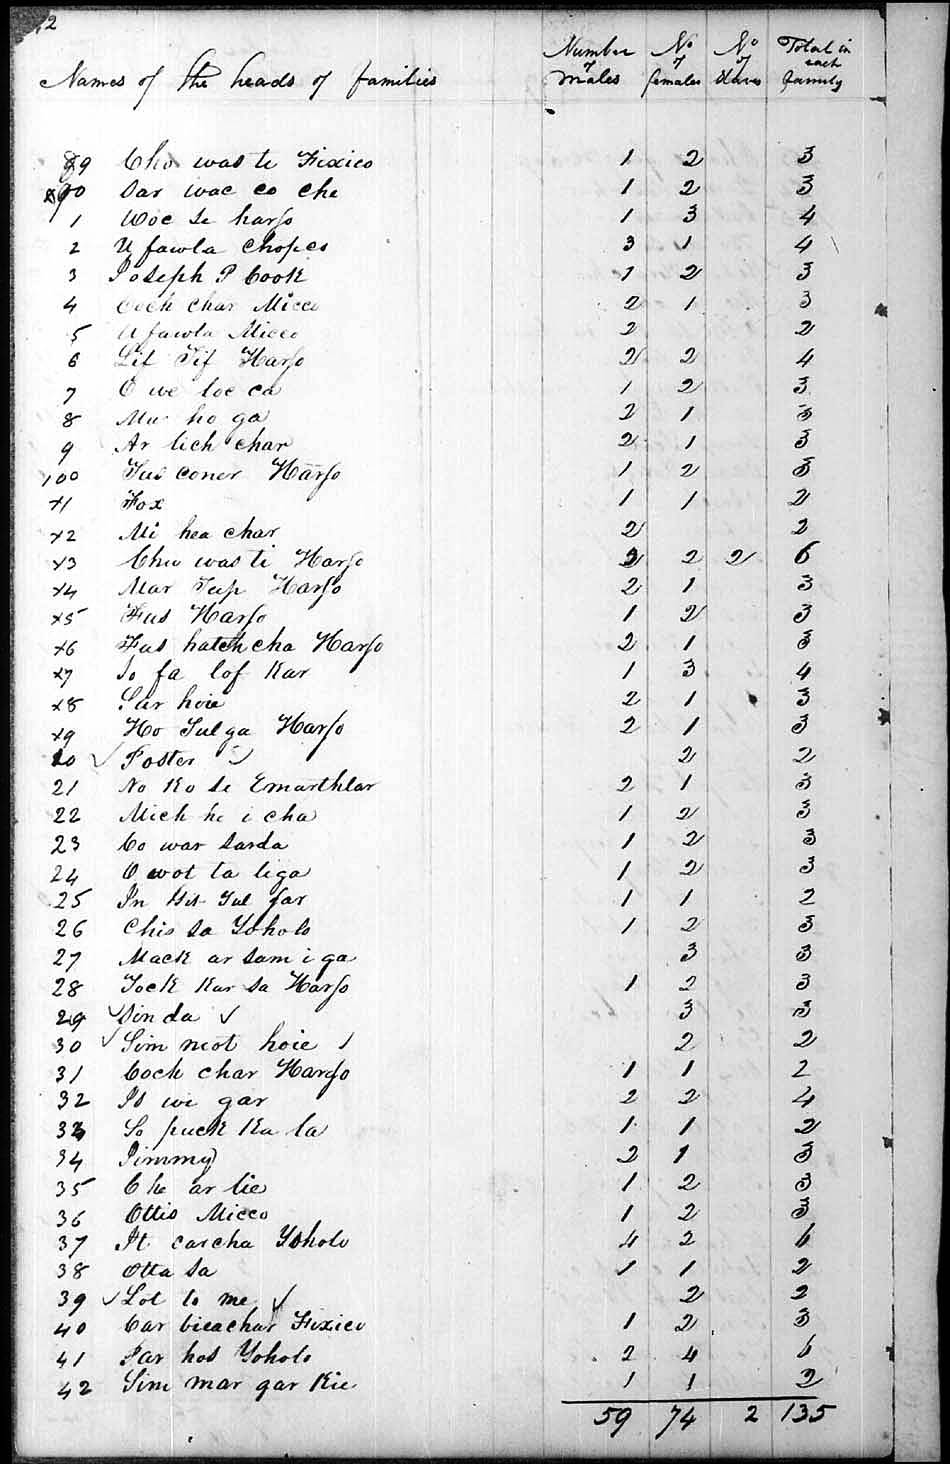 2
Names of the heads of families Number of males No of females No of slaves Total in each family
89 Cho was te Fixico 1 2 3
90 Sar wac co che 1 2 3
1 Woc se harjo 1 3 4
2 U fawla Chopco 3 1 4
3 Joseph P Cook 1 2 3
4 Coch char Micco 2 1 3
5 U fawla Micco 2 2
6 Lif Tif Harjo 2 2 4
7 O we loc ca 1 2 3
8 Mu ho ga 2 1 3
9 Ar lich char 2 1 3
100 Tus coner Harjo 1 2 3
x1 Fox 1 1 2
x2 Mi hea char 2 2
x3 Chu was ti Harjo 2 2 2 6
x4 Mar Tup Harjo 2 1 3
x5 Fus Harjo 1 2 3
x6 Fus hatch cha Harjo 2 1 3
x7 So fa lof kar 1 3 4
x8 Sar hoie 2 1 3
x9 Ho Tul ga Harjo 2 1 3
20 Foster 2 2
21 No Ko se Emarthlar 2 1 3
22 Mich he i cha 1 2 3
23 Co war sarda 1 2 3
24 O wot ta liga 1 2 3
25 In His Tul far 1 1 2
26 Chis sa Yoholo 1 2 3
27 Mack ar sam i ga 3 3
28 Tock Kar sa Harjo 1 2 3
29 Sin da 3 3
30 Sim mot hoie 2 2
31 Coch char Harjo 1 1 2
32 Is we gar 2 2 4
33 So puck Ka la 1 1 2
34 Jimmy 2 1 3
35 C he ar lie 1 2 3
36 Ottis Micco 1 2 3
37 It carcha Yoholo 4 2 6
38 Otta sa 1 1 2
39 Lot to me 2 2
40 Car bicachar Fixico 1 2 3
41 Par hos Yoholo 2 4 6
42 Sim mar gar Kie 1 1 2
59 74 2 135